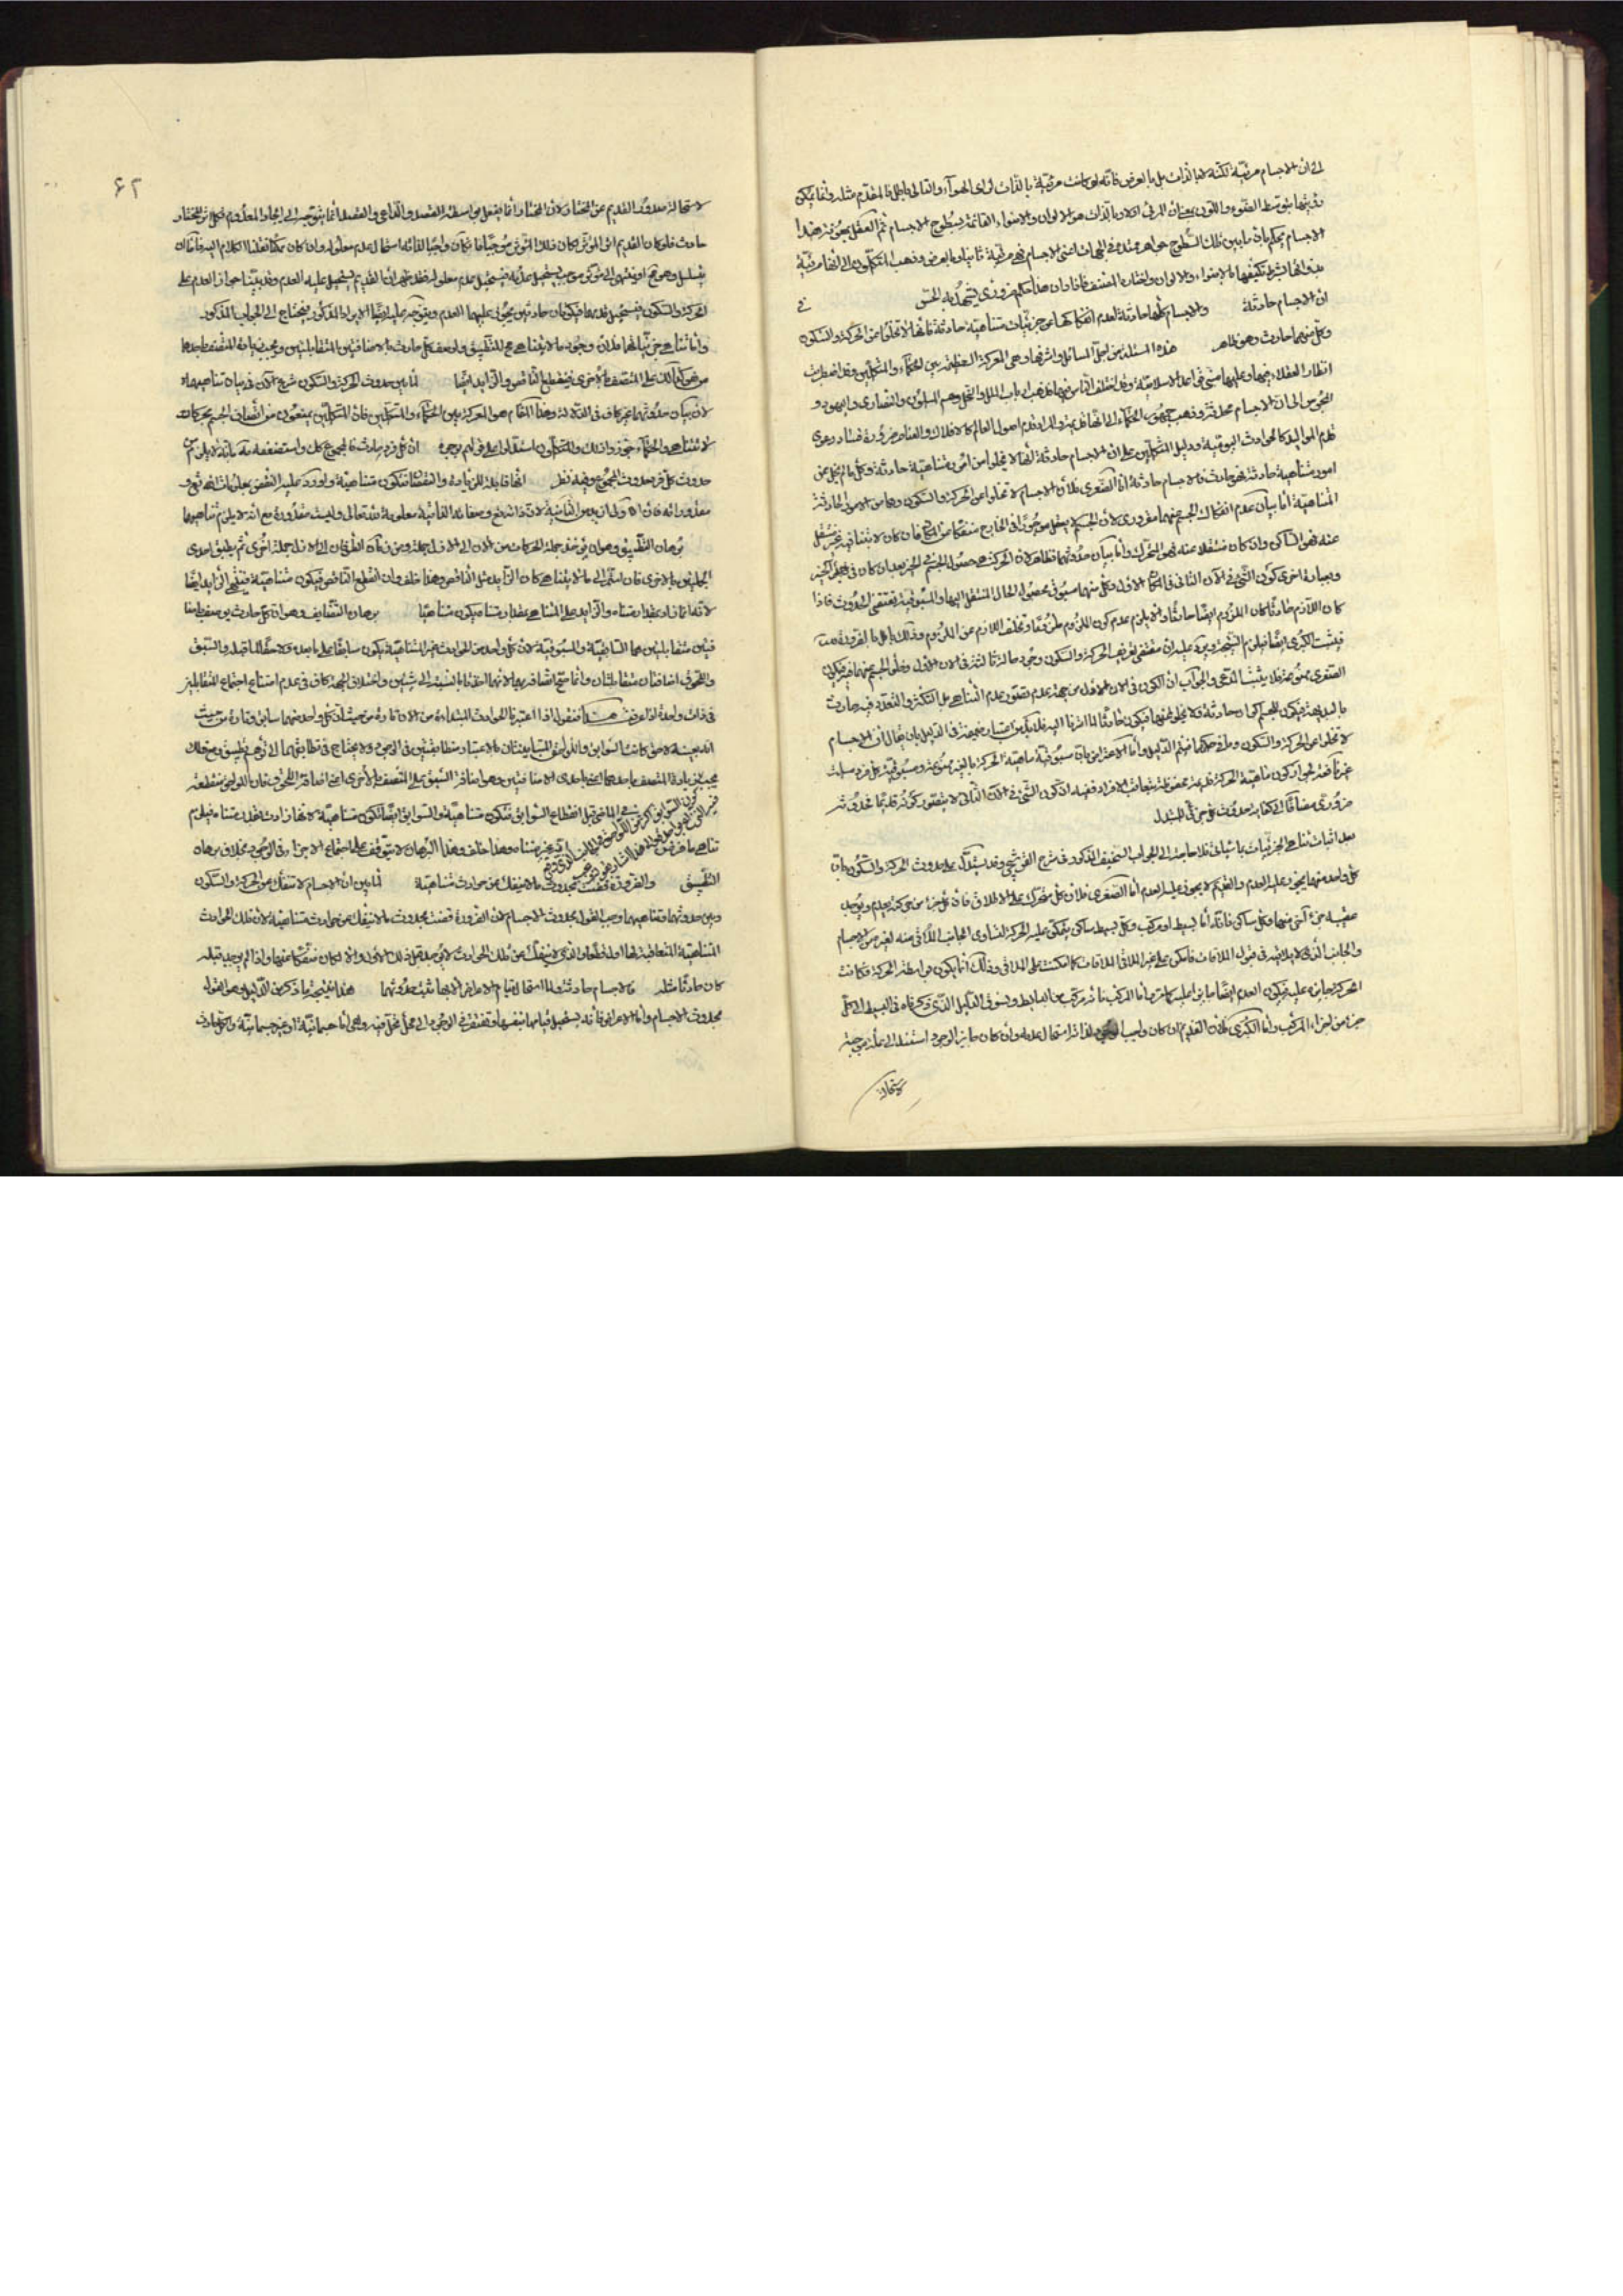 الى ان الاجسام مرئية لكنه لا بالذات بل بالعرض فانه لو كانت مرئية بالذات لرأى الهواء والتالى باطل فالمقدم مثله وانما يمكن
رؤيتها بتوسط الضوء واللون بمعنى ان المرئى اولا وبالذات هو الالوان والاضواء القائمة بسطوح الاجسام ثم العقل بمعونة هذا
الاجسام يحكم بان ما بين تلك السطوح جواهر ممتدة فى الجهات اعنى الاجسام فهى مرئية ثانيا وبالعرض وذهب المتكلمون الى انها مرئية
بذواتها بشرط تكيفها بالاضواء والالوان واختاره المصنف فافاد ان هذا حكم ضرورى يشهد به الحس فى
ان الاجسام حادثة والاجسام كلها حادثة لعدم انفكاكها عن جزئيات متناهية حادثة فانها لا تخلو عن الحركة والسكون
وكل منهما حادث وهو ظاهر هذه المسئلة من اجل المسائل واشرفها وهى المعركة العظيمة بين الحكماء والمتكلمين وقد اضطربت
انظار العقلاء فيها وعليها مبنى قواعد الاسلامية وقد اختلف الناس فيها فذهب ارباب الملل والنحل وهم المسلمون والنصارى واليهود و
المجوس الى ان الاجسام محدثة وذهب جمهور الحكماء الى انها قديمة والمراد قدم اصول العالم كالافلاك والعناصر ضرورة فساد دعوى
قدم المواليد كالحوادث اليومية ودليل المتكلمين على ان الاجسام حادثة انها لا تخلوا من امور متناهية حادثة وكل ما لم يخل من
امور متناهية حادثة فهو حادث فالاجسام حادثة اما الصغرى فلان الاجسام لا تخلوا عن الحركة والسكون وهما من الامور الحادثة
المتناهية اما بيان عدم انفكاك الجسم عنهما فضرورى لان الجسم لا يعقل موجودا فى الخارج منفكا من المكان فان كان لابثا فيه غير منتقل
عنه فهو الساكن وان كان منتقلا عنه فهو المتحرك واما بيان حدوثهما فظاهر لان الحركة هى حصول الجسم فى الحيز بعد ان كان فى حيز آخر
وبعبارة اخرى كون الشئ فى الآن الثانى فى المكان الاول وكل منهما مسبوق بحصوله الحال المنتقل اليها والمسبوقية تقتضى الحدوث فاذا
كان اللازم حادثا كان الملزوم ايضا حادثا والا يلزم عدم كون الملزوم ملزوما وتخلف اللازم عن الملزوم وذلك باطل بالضرورة
فيثبت الكبرى ايضا فيلزم النتيجة ويرد عليه ان مقتضى تعريف الحركة والسكون وجود حالة ثالثة فى الآن الاول وخلو الجسم عنهما فيه فيكون
الصغرى ممنوعة فلا يثبت المدعى والجواب ان الكون فى الآن الاول من جهة عدم تصور عدم التناهى بل التكثر والتعدد فيه حادث
بالبديهة فيكون الجسم الموجود حادثة ولا يخلو عنها فيكون حادثا
لا تخلوا عن الحركة والسكون وما فى حكمهما فيتم الدليل واما الاعتراض بان مسبوقية ماهية الحركة بالغير ممنوعة ومسبوقية كل فرد ليست
غير نافعة لجواز كون ماهية الحركة قديمة محفوظة بتعاقب الافراد ففيه ان كون الشئ فى الآن الثانى لا يتصور كونه قديما فحدوثه
ضرورى مضافا الى كفاية حدوث كل جزئى للمستدل
بعد اثبات تناهى الجزئيات بما سيأتى فلا حاجة الى الجواب السخيف المذكور فى شرح القوشجى وقد يستدل على حدوث الحركة والسكون بان
كل واحد منهما يجوز عليه العدم والقديم لا يجوز عليه العدم اما الصغرى فلان كل متحرك على الاطلاق فان كل جزء من حركته يعدم ويوجد
عقيبه جزء آخر منها وكل ساكن فانه اما بسيط او مركب وكل بسيط ساكن يمكن عليه الحركة لتساوى الجانب الملاقى منه لغيره من الاجسام
والجانب الذى لا يلاقيه فى قبول الملاقات فامكن على غير الملاقى الملاقات كما امكنت على الملاقى وذلك انما يكون بواسطة الحركة فكانت
الحركة جايزة عليه فيكون العدم ايضا جايزا عليه كما مر واما المركب فانه مركب من البسايط ويسوق الدليل الذى ذكرناه فى البسيط الى كل
جزء من اجزاء المركب واما الكبرى فلان القديم ان كان واجب الوجود لذاته استحال عدمه وان كان جايز الوجود استند الى علة موجبة
لاستحالة
۶۲
لاستحالة صدور القديم عن المختار لان المختار انما يفعل بواسطة القصد والداعى والقصد انما يتوجه الى ايجاد المعدوم فكل اثر للمختار
حادث فلو كان القديم اثر المؤثر لكان ذلك المؤثر موجبا فان كان واجبا لذاته استحال عدم معلوله وان كان ممكنا نقلنا الكلام اليه فاما ان
يتسلسل وهو مح او ينتهى الى مؤثر موجب يستحيل عدمه فيستحيل عدم معلوله فقد ظهر ان القديم يستحيل عليه العدم وقد بينا جواز العدم على
الحركة والسكون فيستحيل قدمهما فيكونان حادثين يجوز عليهما العدم ويتوجه عليه ايضا الايراد المذكور فيحتاج الى الجواب المذكور
واما تناهى جزئياتهما فلان وجود ما لا يتناهى مح للتطبيق ولوصف كل حادث بالاضافيتين المتقابلتين ويجب زيادة المتصف باحدهما
من حيث هو كذلك على المتصف بالاخرى فينقطع الناقص والزايد ايضا لما بين حدوث الحركة والسكون شرع الآن فى بيان تناهيهما
لان بيان حدوثهما غير كاف فى الدلالة وهذا المقام هو المعركة بين الحكماء والمتكلمين فان المتكلمين يمنعون من اتصاف الجسم بحركات
لا تتناهى والحكماء جوزوا ذلك والمتكلمون استدلوا على قولهم بوجوه ان كل فرد حادث فالمجموع كذلك واستضعفه بانه لا يلزم من
حدوث كل فرد حدوث المجموع وفيه نظر انها قابلة للزيادة والنقصان فتكون متناهية واورد عليه النقض بمعلومات الله تع و
مقدوراته فان الاولى ازيد من الثانية لان ذاته تع وصفاته الذاتية معلومة لله تعالى وليست مقدورة مع انه لا يلزم تناهيهما
برهان التطبيق وهو ان يؤخذ جملة الحركات من الآن الى الازل جملة ومن زمان الطوفان الى الازل جملة اخرى ثم يطبق احدى
الجملتين بالاخرى فان استمرا الى ما لا يتناهى كان الزايد مثل الناقص وهذا خلف وان انقطع الناقص فيكون متناهية فينتهى الزايد ايضا
لانه انما زاد بمقدار متناه والزايد على المتناهى بمقدار متناه يكون متناهيا برهان التضايف وهو ان كل حادث يوصف باضا
فتين متقابلتين هما السابقية والمسبوقية لان كل واحد من الحوادث الغير المتناهية يكون سابقا على ما بعده ولاحقا لما قبله والسبق
واللحوق اضافتان متقابلتان وانما صح اتصافه بهما لانهما اخذتا بالنسبة الى شيئين واختلاف الجهة كاف فى عدم امتناع اجتماع المتقابلين
فى ذات واحدة اذا عرفت هذا فنقول اذا اعتبرنا الحوادث المبتدأة من الآن تارة من حيث ان كل واحد منها سابق وتارة من حيث
انه بعينه لاحق كانت السوابق واللواحق المتباينتان بالاعتبار متطابقتين فى الوجود ولا يحتاج فى تطابقهما الى توهم تطبيق ومع ذلك
يجب زيادة المتصف باحدهما اعنى باحدى الاضافتين وهى اضافة السبق على المتصف بالاخرى اعنى اضافة اللحوق فاذن اللواحق منقطعة
فى الماضى قبل انقطاع السوابق فتكون متناهية والسوابق ايضا تكون متناهية لانها زادت بمقدار متناه فيلزم
تناهى ما فرض انه غير متناه وهذا خلف وهذا البرهان لا يتوقف على اجتماع الاجزاء فى الوجود بخلاف برهان
التطبيق والضرورة قضت بحدوث ما لا ينفك عن حوادث متناهية لما بين ان الاجسام لا تنفك من الحركة والسكون
وبين حدوثهما وتناهيهما وجب القول بحدوث الاجسام لان الضرورة قضت بحدوث ما لا ينفك عن حوادث متناهية لان تلك الحوادث
المتناهية المتعاقبة لها اول قطعا والذى لا ينفك عن تلك الحوادث لا يوجد قبل ذلك الاول والا لكان منفكا عنها واذا لم يوجد قبله
كان حادثا مثله فالاجسام حادثة ولما استحال قيام الاعراض الا بها ثبت حدوثها هذا نتيجة ما ذكر من الدليل وهو القول
بحدوث الاجسام واما الاعراض فانه يستحيل قيامها بنفسها وتفتقر فى الوجود الى محل تحل فيه وهى اما جسمانية او غير جسمانية والكل حادث